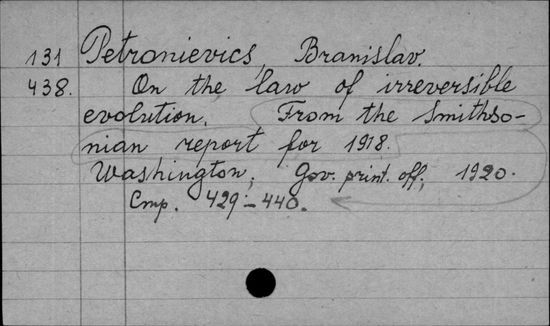 131 Petronievics, Branislav.
438. On the law of irreversible
evolution. From the Smithso-
nian report for 1918.
Washington, Gov. print. off., 1920.
Стр. 429-440.